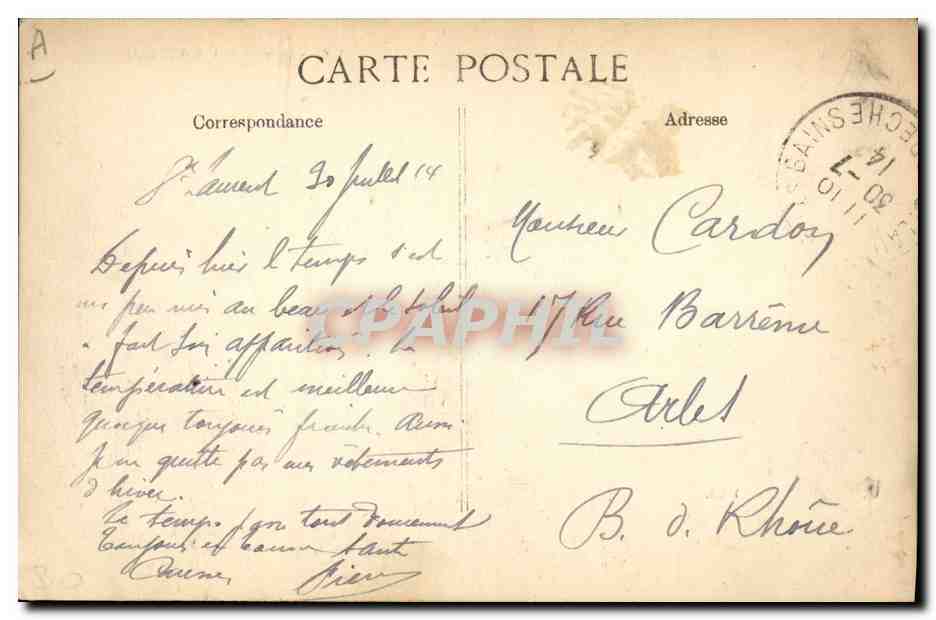 A
CARTE POSTALE
Correspondance
Adresse
St Laurent 30 Juillet 14
Depuis hier le temps s'est
un peu mis au beau et le soleil
a fait son apparition. La
température est meilleure
quoique toujours fraiche. Aussi
je ne quitte pas mes vêtements
d'hiver.
Le temps passe tout doucement
Toujours en bonne santé
Pierre
Monsieur Cardon
17 Rue Barrême
Arles
B. d. Rhône
BAINS
ECHE
11 10
30 -7
14
CPAPHIL